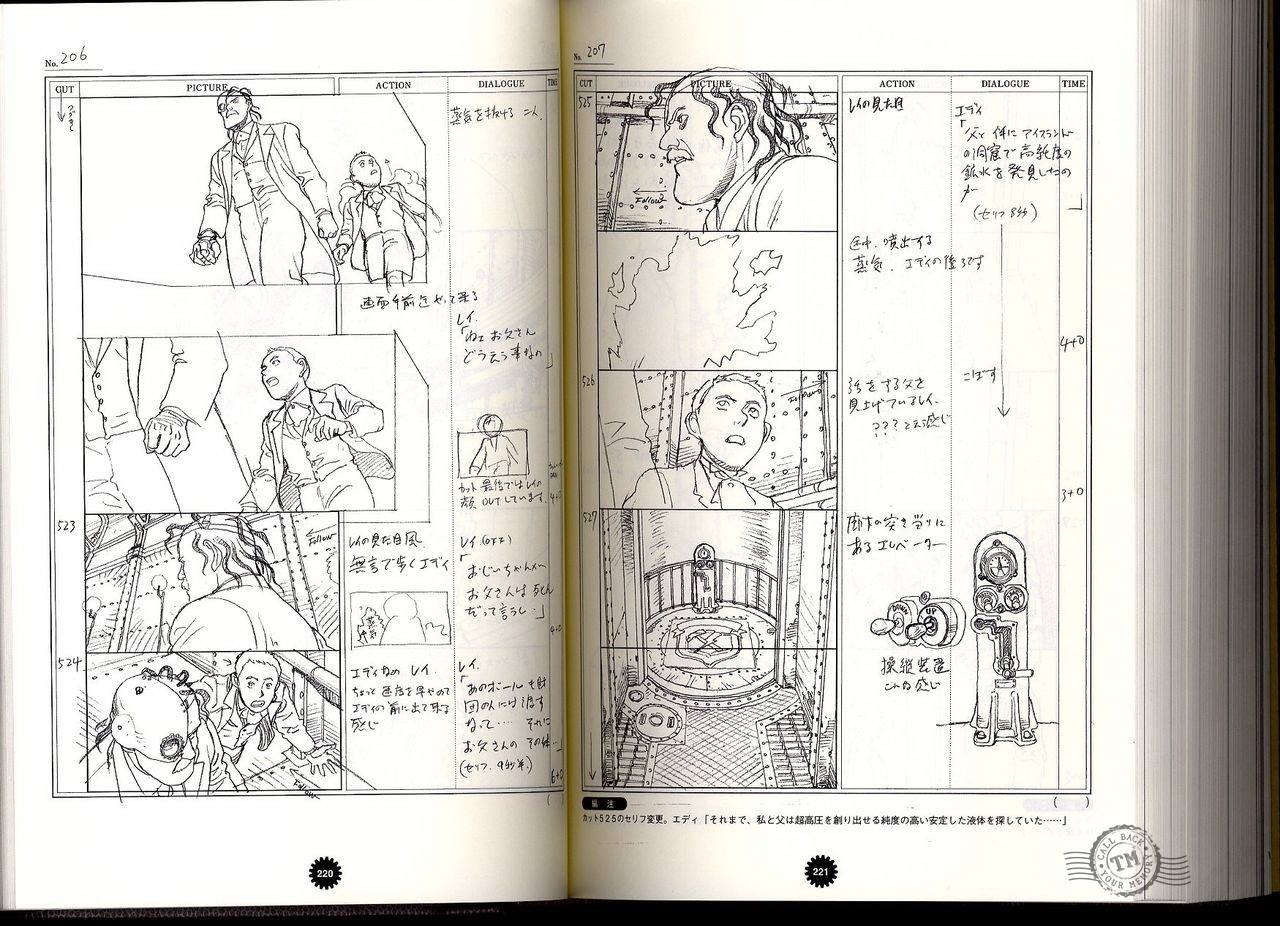 No. 206
CUT
PICTURE
ACTION
DIALOGUE
TIME
つづき
蒸気を抜ける 二人.
画面手前をやって来る
レイ.
「ねェ お父さん
どう云う事なの」
カット最後ではレイの
顔 OUTしています.
4+0
523
Follow
レイの見た目風.
無言で歩くエディ
蒸気
レイ(OFF)
「おじいちゃんが
お父さんは死んだって言うし‥」
4+0
524
エディなめ レイ.
ちょっと速度を早やめて
エディの前に出て来る
感じ
レイ.
「あのボールも財
団の人には渡す
なって…… それに
お父さんの その体…」
(セリフ. 9秒半.)
6+0
Follow
( )
220
No. 207
CUT
PICTURE
ACTION
DIALOGUE
TIME
525
Follow
レイの見た目
エディ
「父と 供に アイスランド
の洞窟で 高純度の
鉱水を発見したの
が
」
(セリフ 8秒)
途中. 噴出する
蒸気. エディの後ろです
4+0
526
Follow
話をする父を
見上げているレイ.
???と云う感じ
こぼす
3+0
527
廊下の突き当りに
ある エレベーター
DOWN
UP
操縦装置
こんな感じ
( )
編 注
カット525のセリフ変更。エディ「それまで、私と父は超高圧を創り出せる純度の高い安定した液体を探していた……」
221
CALL BACK
TM
YOUR MEMORY